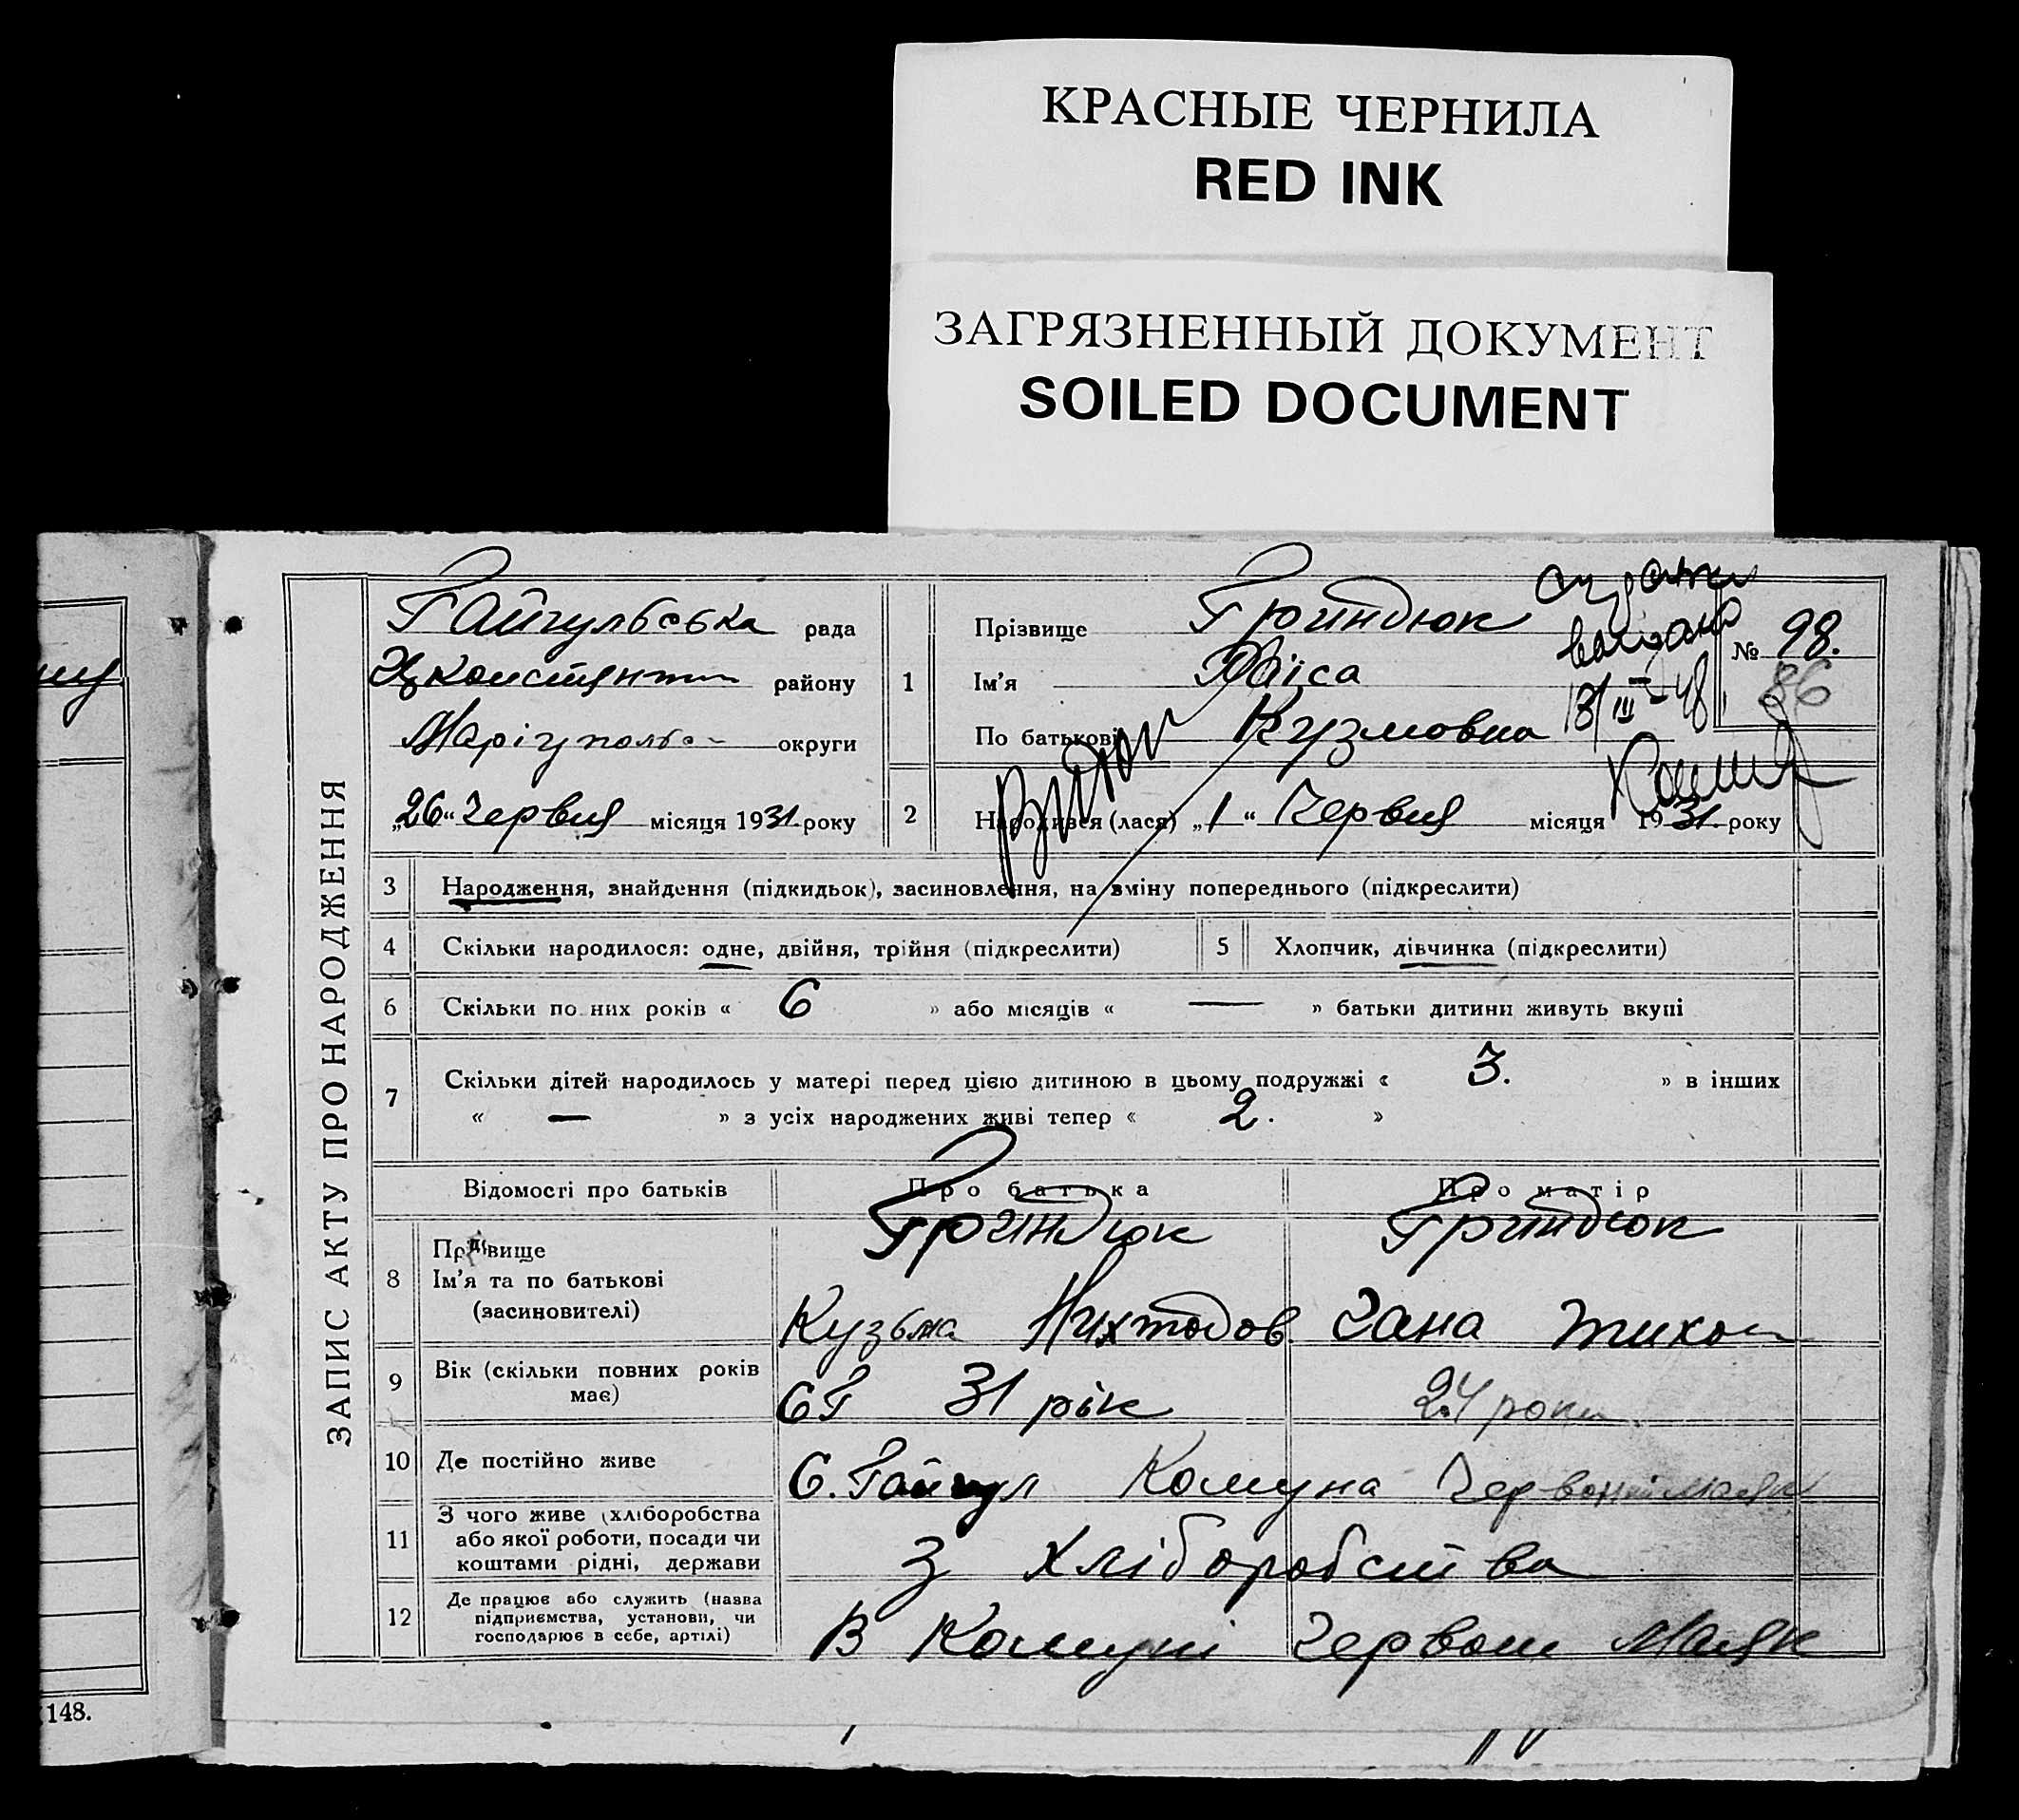 КРАСНЫЕ ЧЕРНИЛА
RED INK
ЗАГРЯЗНЕННЫЙ ДОКУМЕНТ
SOILED DOCUMENT
ЗАПИС АКТУ ПРО НАРОДЖЕННЯ
Гайчульська рада
району
Маріупольс округи
„26“ Червня місяця 1931 року
1
Прізвище Гриндюк
Ім'я Раїса
По батькові Кузмовна
№ 98.
86
18/III-48
2 Народився (лася) „1“ Червня місяця 1931 року
3 Народження, знайдення (підкидьок), засиновлення, на зміну попереднього (підкреслити)
4 Скільки народилося: одне, двійня, трійня (підкреслити) 5 Хлопчик, дівчинка (підкреслити)
6 Скільки по них років « 6 » або місяців « — » батьки дитини живуть вкупі
7 Скільки дітей народилось у матері перед цією дитиною в цьому подружжі « 3. » в інших
« — » з усіх народжених живі тепер « 2. »
Відомості про батьків Про батька Про матір
8 Прізвище Гриндюк Гриндюк
Ім'я та по батькові
(засиновителі) Кузьма
9 Вік (скільки повних років має) 31 рік 24 роки
10 Де постійно живе С. Гайчул Комуна Червоний маяк
11 З чого живе (хліборобства
або якої роботи, посади чи
коштами рідні, держави З хліборобства
12 Де працює або служить (назва
підприємства, установи, чи
господарює в себе, артілі) В Комуні Червони Маяк
148.